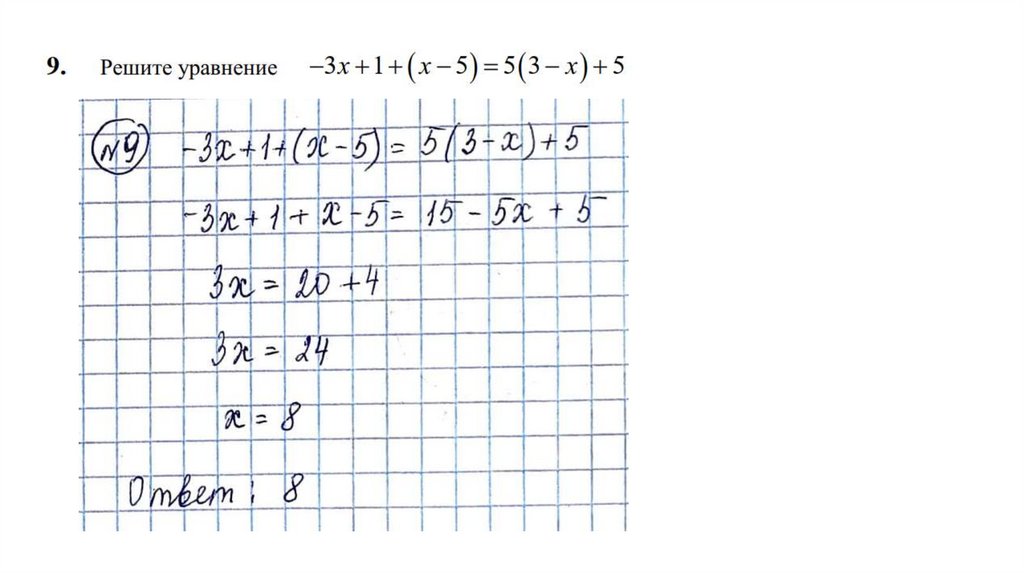 9. Решите уравнение −3x+1+(x−5)=5(3−x)+5
№9 -3x+1+(x-5)= 5(3-x)+5
-3x+1+x-5= 15-5x+5
3x = 20+4
3x = 24
x = 8
Ответ: 8